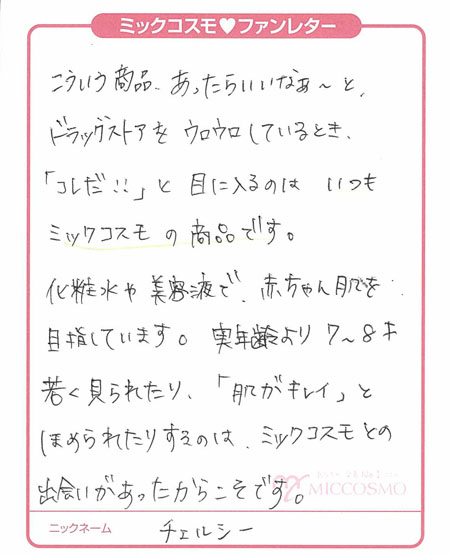 ミックコスモ♥ファンレター
こういう商品、あったらいいなぁ〜と、
ドラッグストアを ウロウロしているとき、
「コレだ!!」と 目に入るのは いつも
ミックコスモ の 商品です。
化粧水や 美容液で、赤ちゃん肌を
目指しています。実年齢より 7〜8才
若く見られたり、「肌がキレイ」と
ほめられたりするのは、ミックコスモとの
出会いがあったからこそです。
MICCOSMO
ニックネーム チェルシー